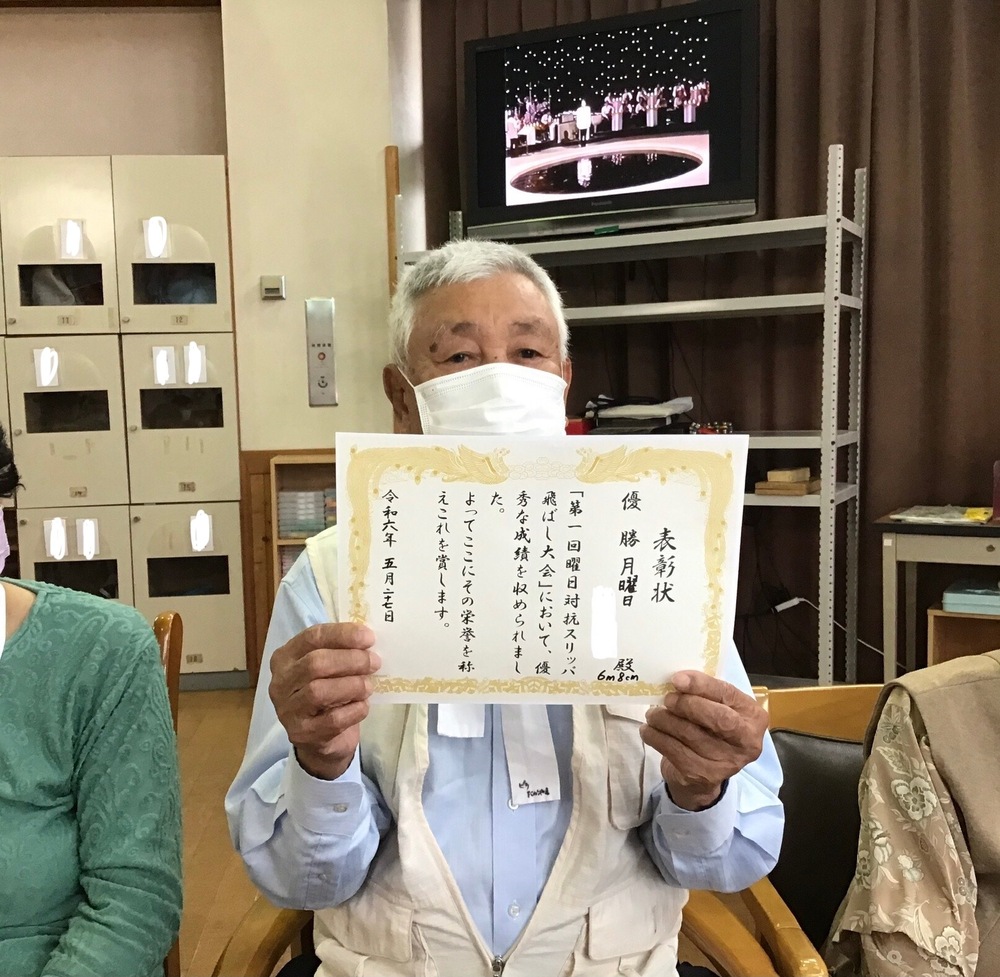 表彰状
優勝 月曜日
殿
6m8cm
「第一回曜日対抗スリッパ
飛ばし大会」において、優
秀な成績を収められまし
た。
よってここにその栄誉を称
えこれを賞します。
令和六年 五月二十七日
Panasonic